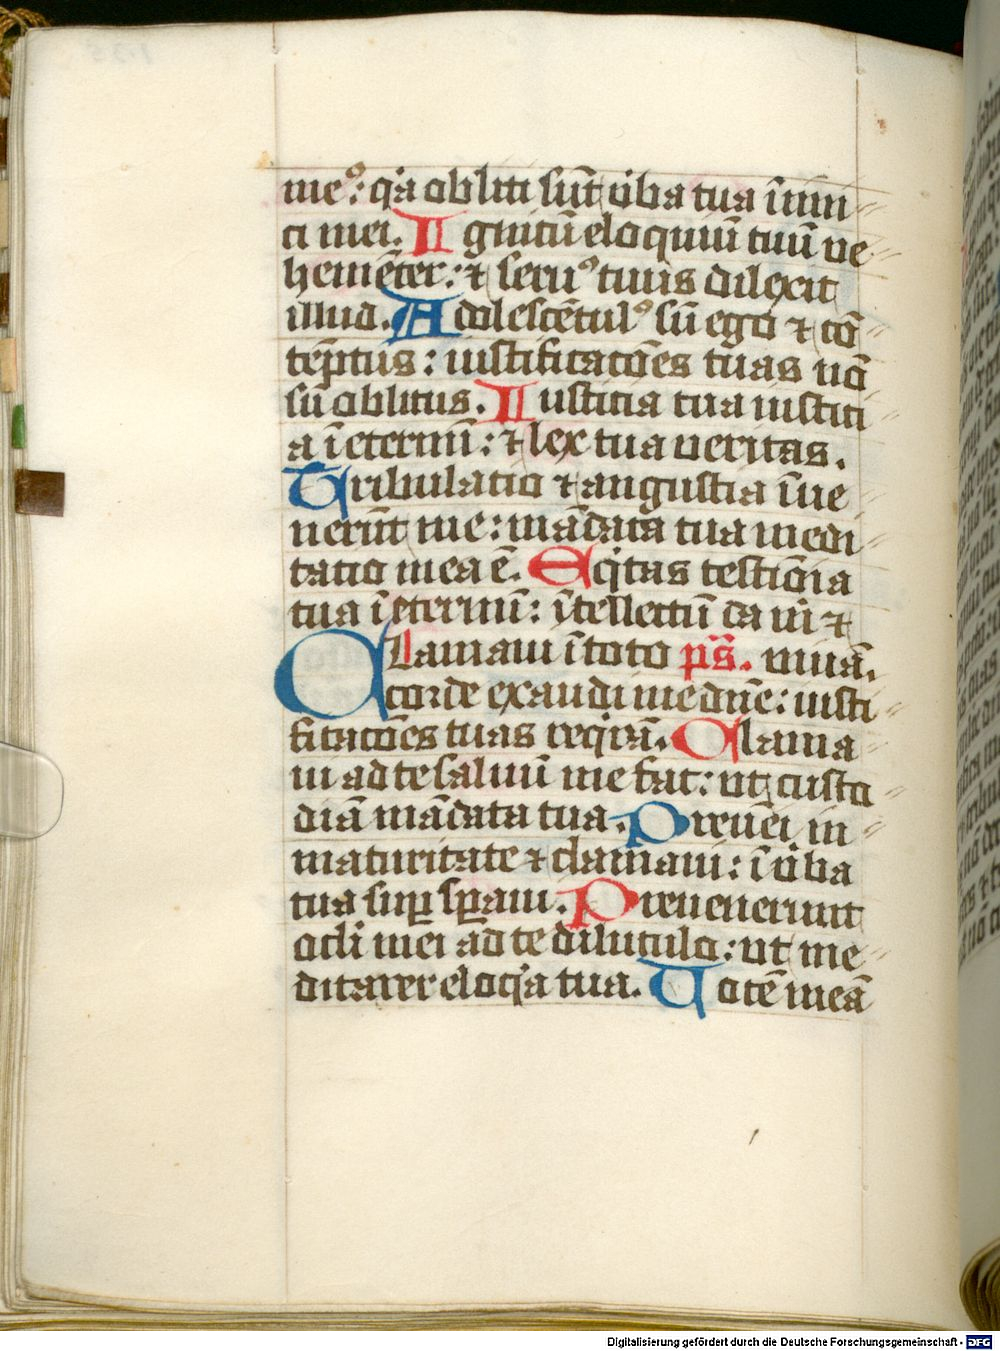 meꝰ: qͥa obliti sūt v̓ba tua īimi
ci mei. Ignitū eloquiū tuū ve
hemēter: ⁊ seruꝰ tuus dilexit
illud. Adolescētulꝰ sū ego ⁊ cō
tēptus: iustificacōes tuas nō
sū oblitus. Iusticia tua iustici
a ī eternū: ⁊ lex tua veritas.
Tribulatio ⁊ angustia īue
nerūt me: mādata tua medi
tatio mea ē. Eqͥtas testiōia
tua ī eternū: ītellectū da m̄ ⁊
Clamaui ī toto ps̄. viuā.
corde exaudi me dn̄e: iusti
ficacōes tuas reqͥrā. Clama
ui ad te saluū me fac: ut custo
diā mādata tua. Preueī in
maturitate ⁊ clamaui: ī v̓ba
tua suꝑ sꝑaui. Preuenerunt
ocli mei ad te diluculo: ut me
ditarer eloqͥa tua. Vocē meā
Digitalisierung gefördert durch die Deutsche Forschungsgemeinschaft - DFG